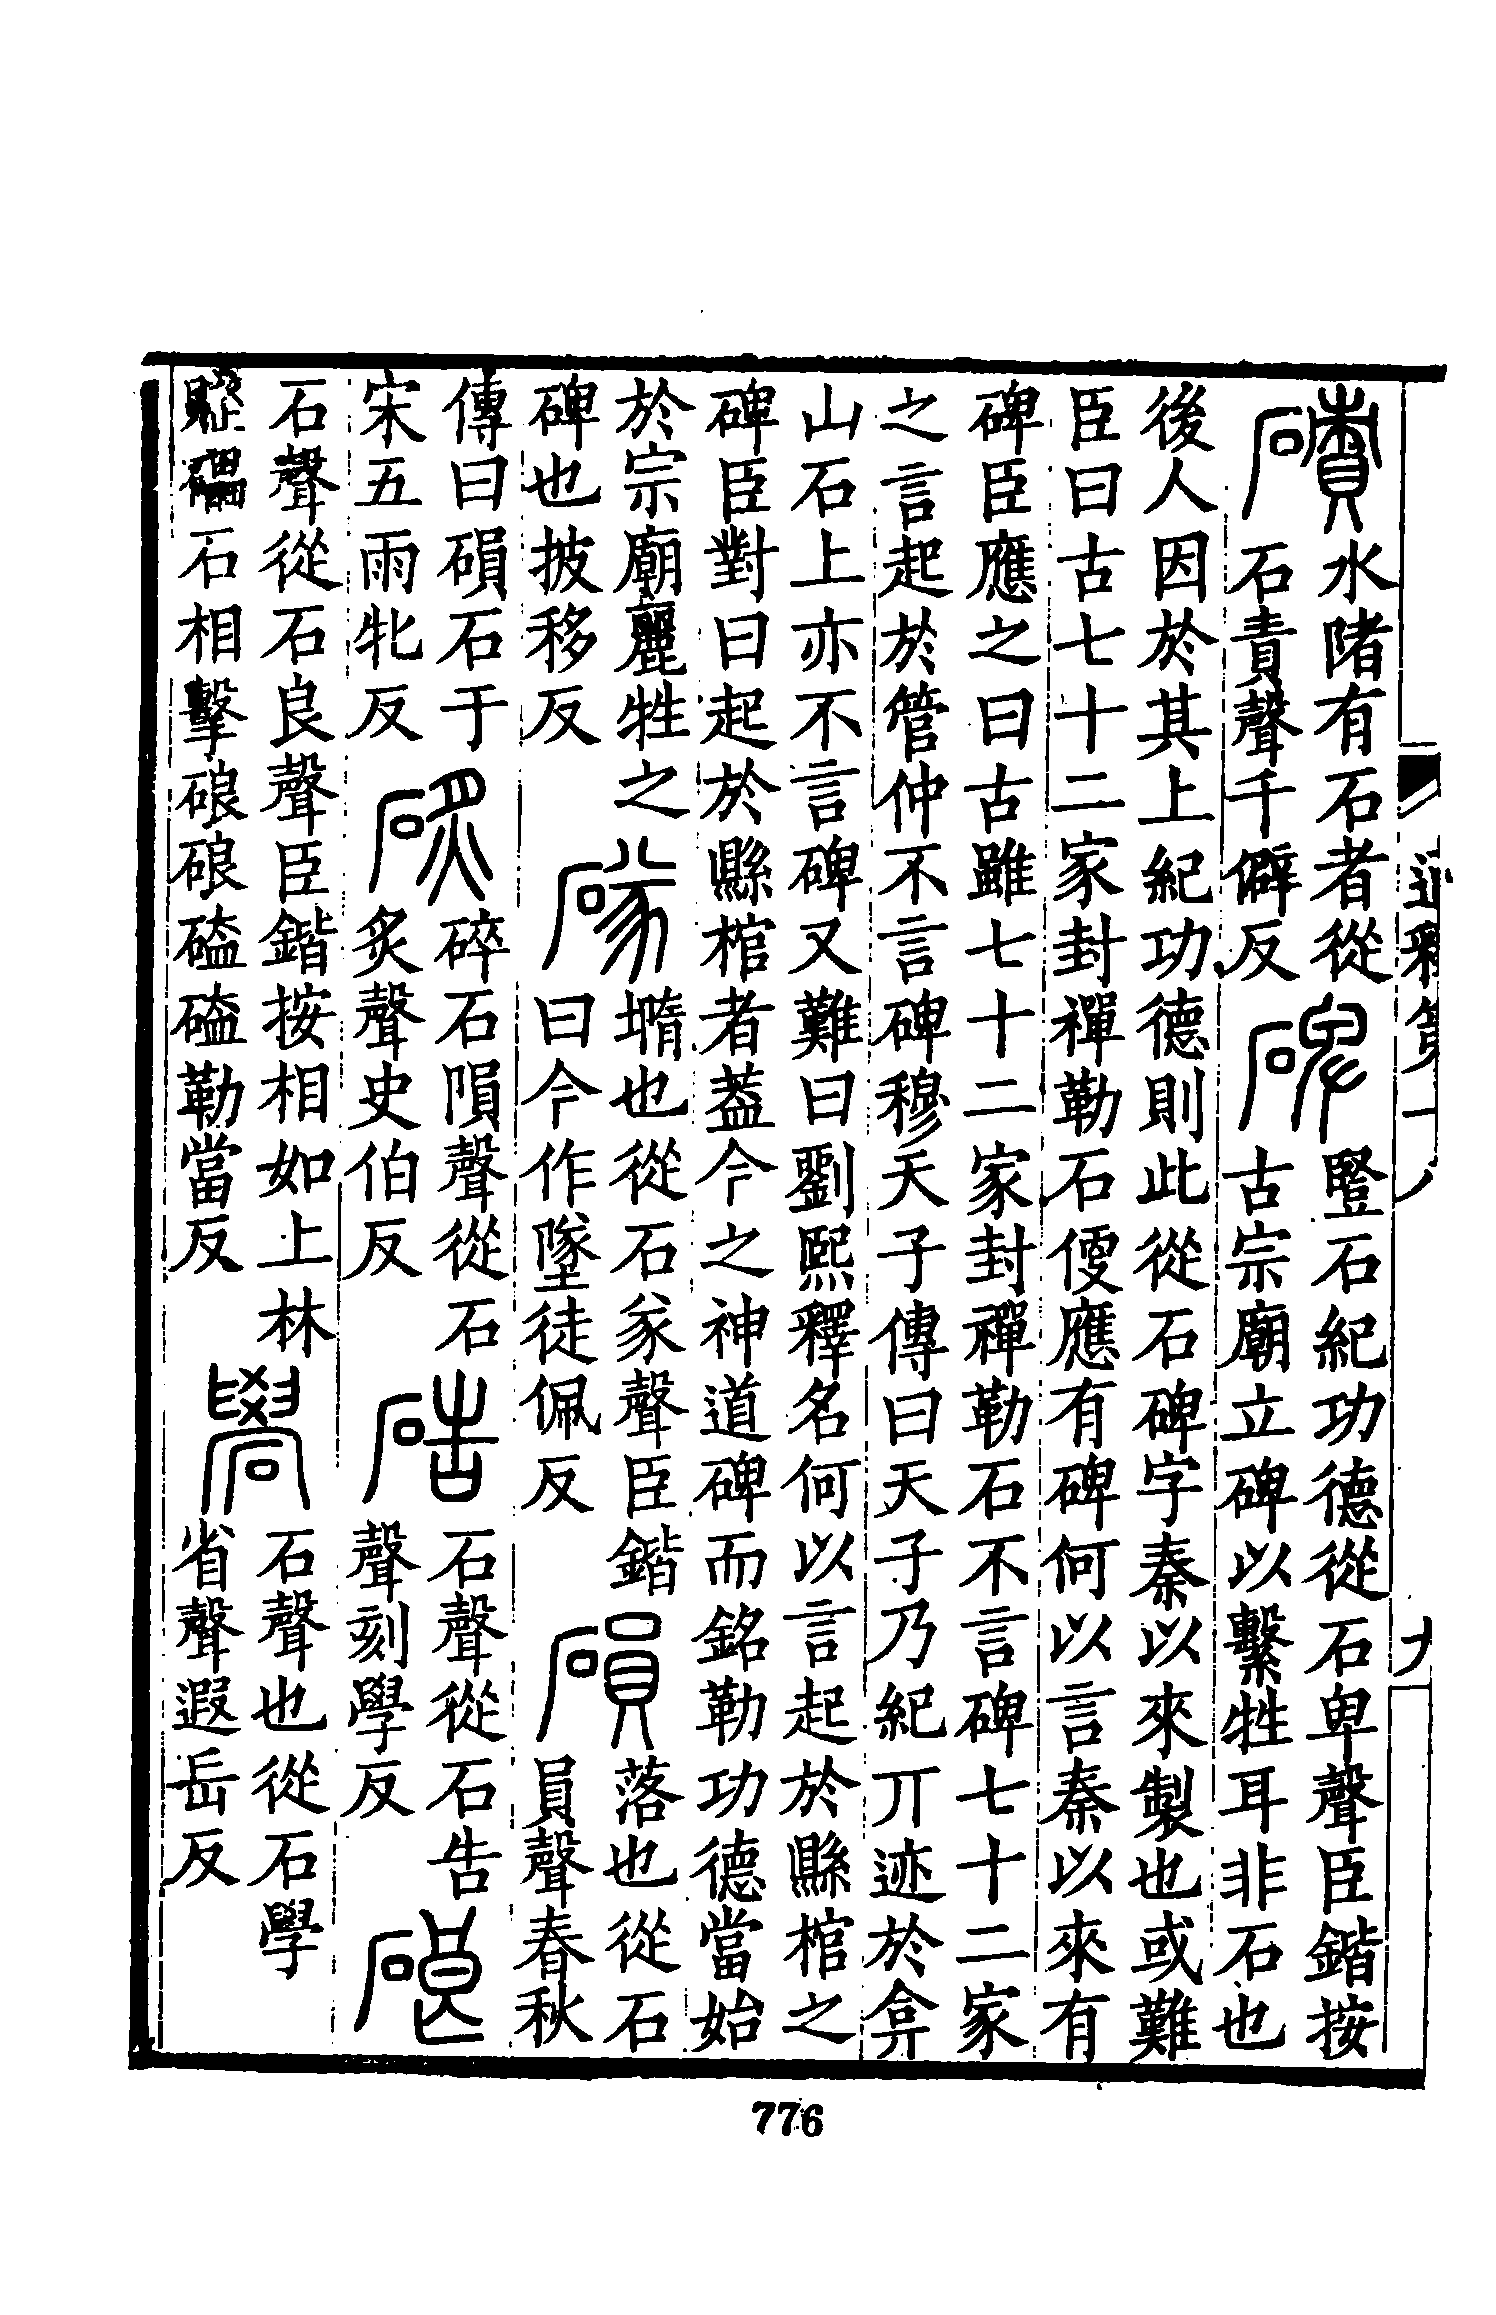 磧水陼有石者從
石責聲千僻反
碑豎石紀功德從石卑聲臣鍇按
古宗廟立碑以繫牲耳非石也
後人因於其上紀功德則此從石碑字秦以來製也或難
臣曰古七十二家封禪勒石偄應有碑何以言秦以來有
碑臣應之曰古雖七十二家封禪勒石不言碑七十二家
之言起於管仲不言碑穆天子傳曰天子乃紀丌迹於弇
山石上亦不言碑又難曰劉熙釋名何以言起於縣棺之
碑臣對曰起於縣棺者葢今之神道碑而銘勒功德當始
於宗廟麗牲之
碑也披移反
䃍墯也從石㒸聲臣鍇
曰今作墜徒佩反
磒落也從石
員聲春秋
傳曰磒石于
宋五雨牝反
碎石隕聲從石
炙聲史伯反
硞石聲從石告
聲刻學反
硍
石聲從石良聲臣鍇按相如上林
石相擊硠硠磕磕勒當反
礐石聲也從石學
省聲遐岳反
通釋第十八
九
776